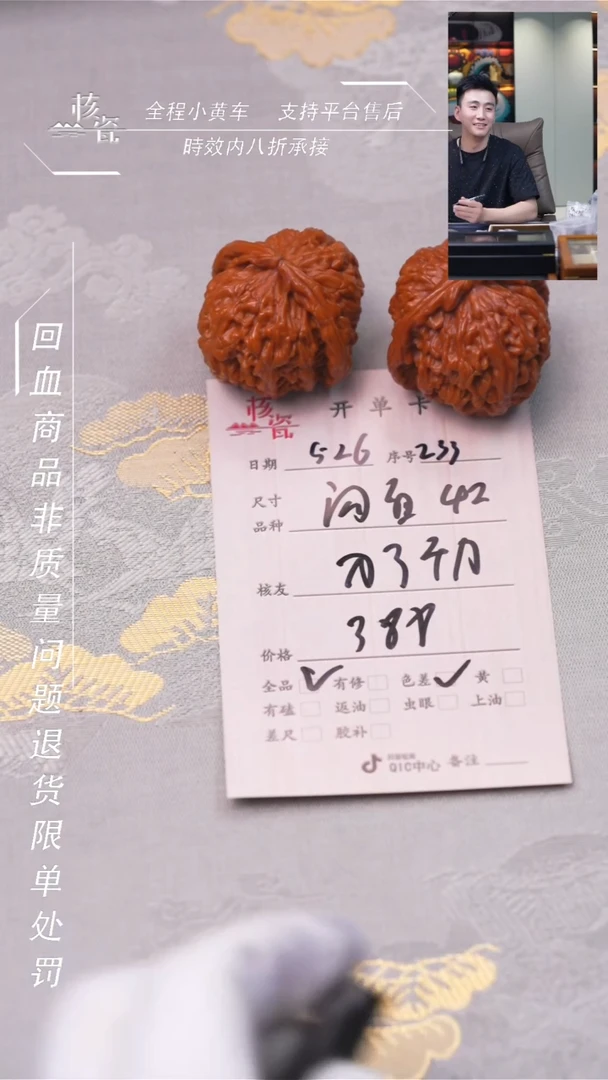 核瓷
全程小黄车 支持平台售后
時效内八折承接
回血商品非质量问题退货限单处罚
核瓷 开单卡
日期 526 序号 233
尺寸
品种 42
核友
价格
全品 有修 色差 黄
有磕 返油 虫眼 上油
差尺 胶补
QIC中心 备注